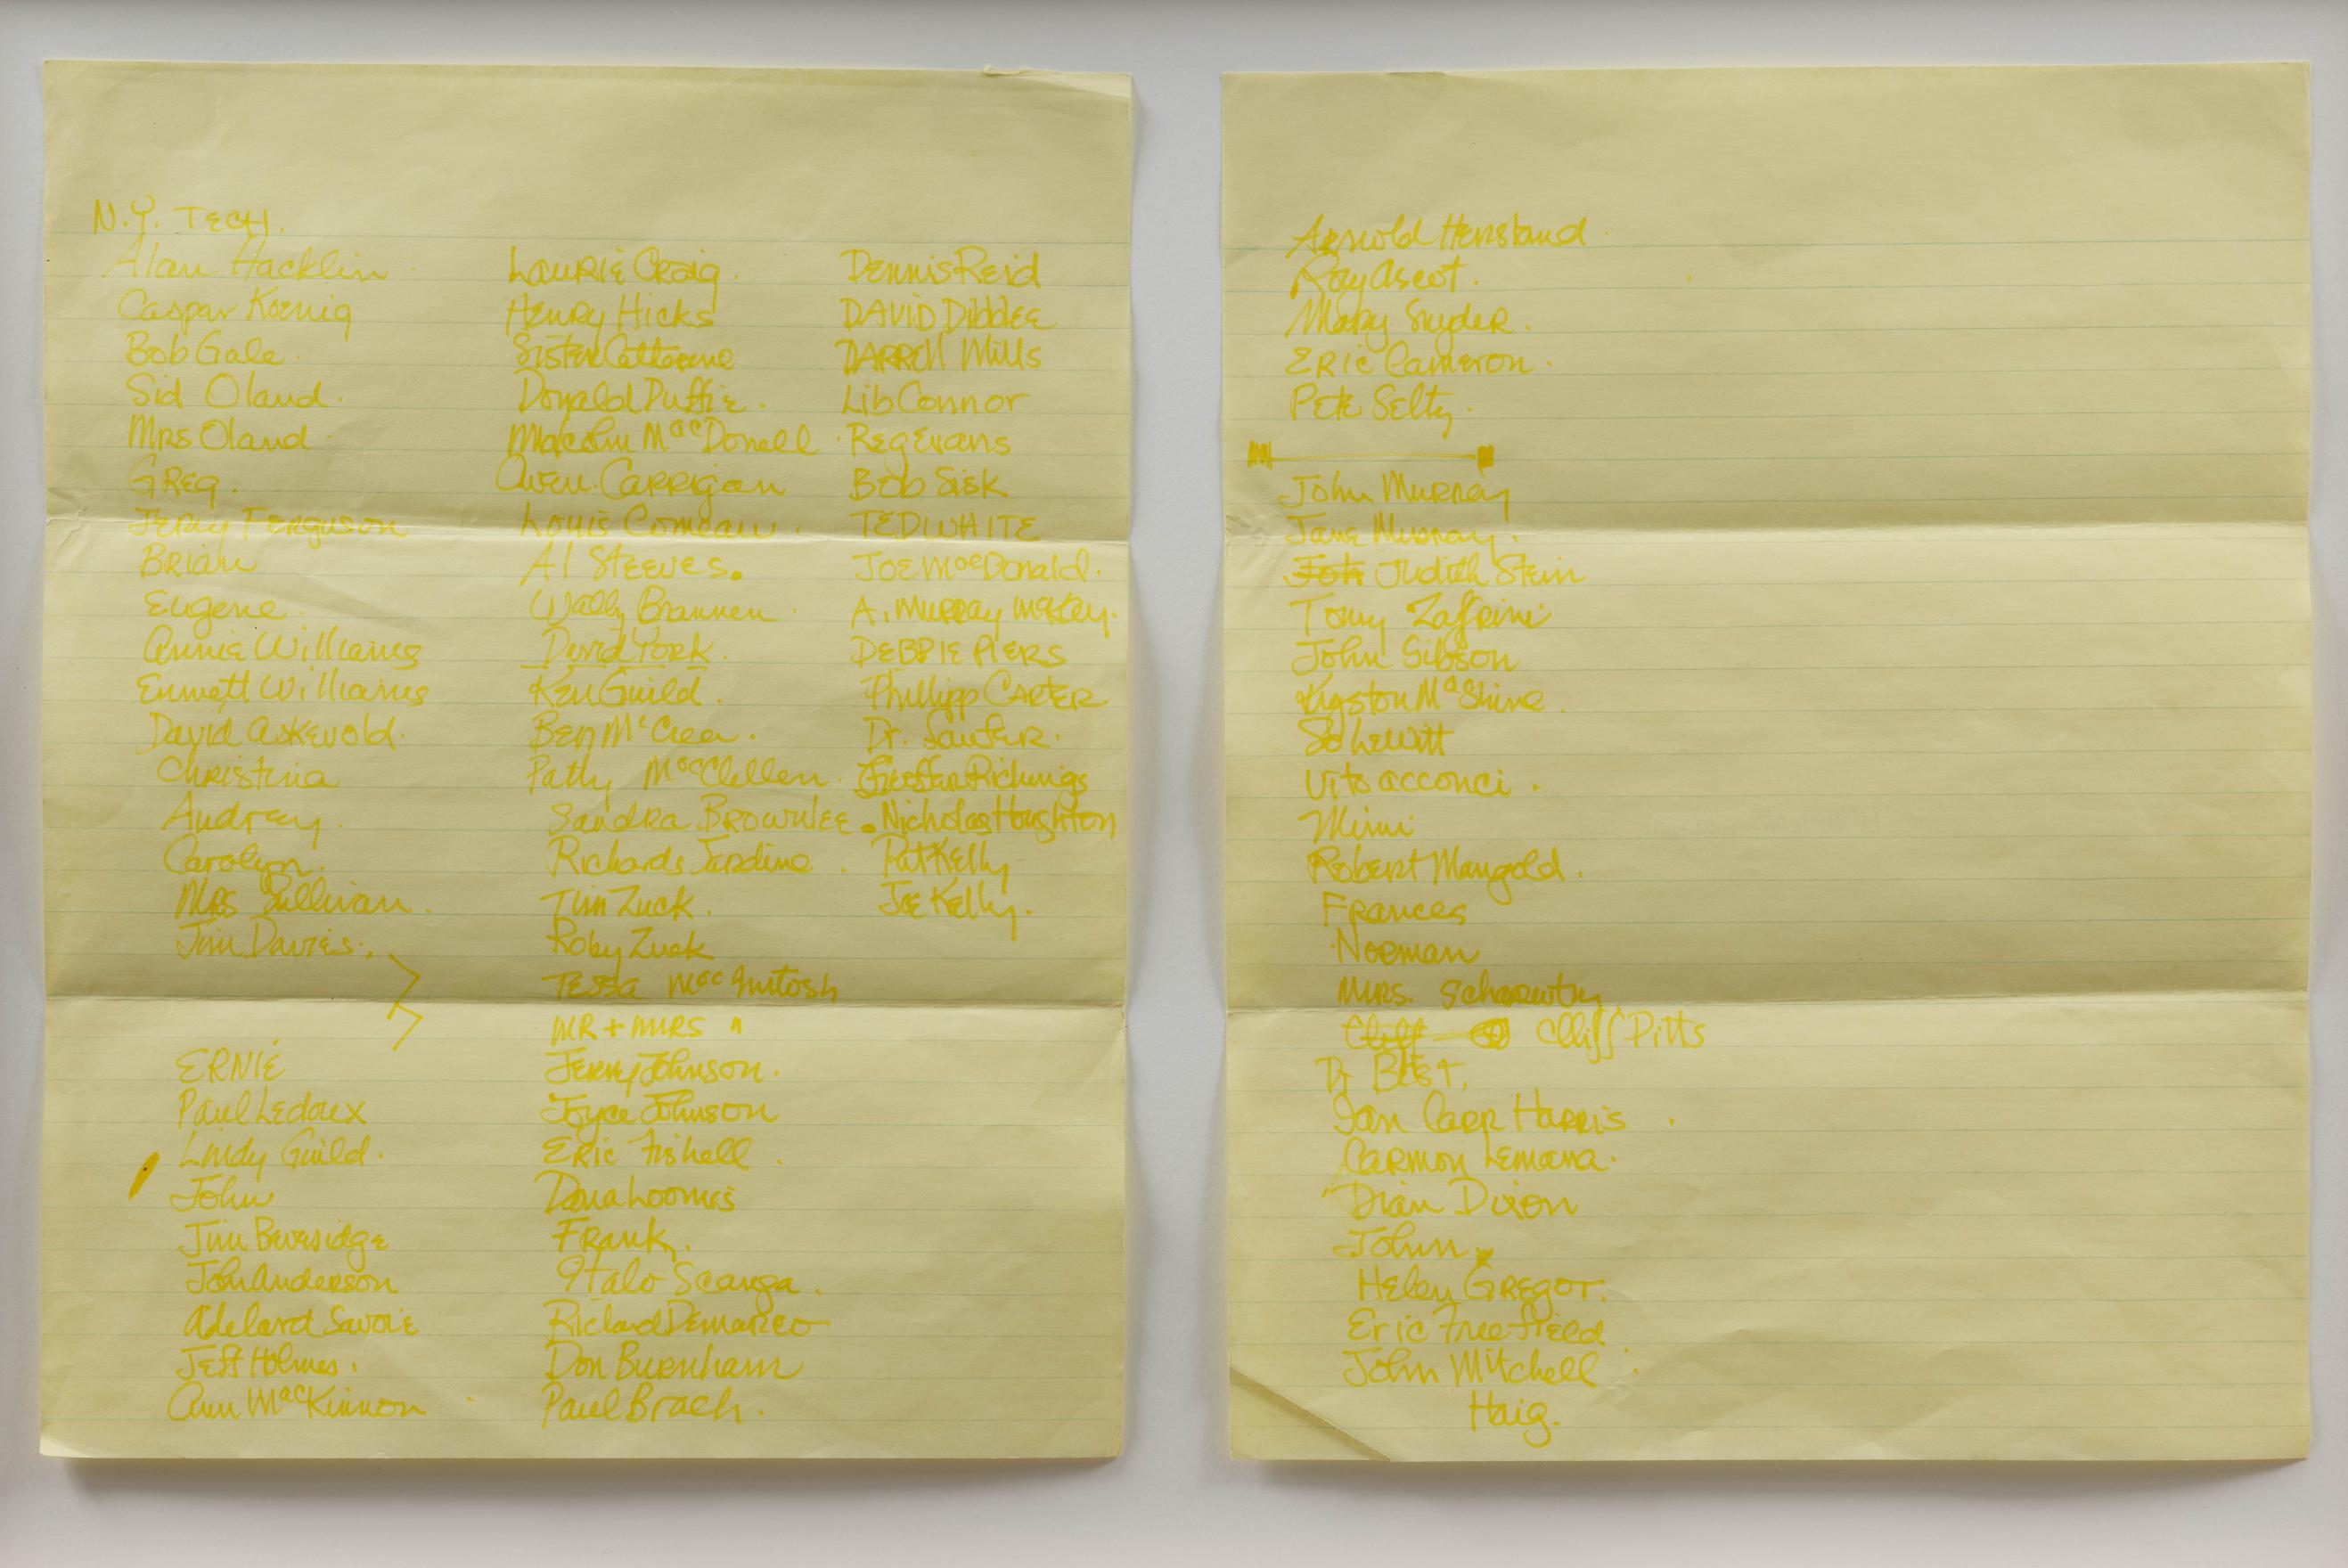 N.Y. TECH.
Alan Hacklin
Caspar Koenig
Bob Gale.
Sid Oland.
Mrs Oland.
GREG.
Jerry Ferguson
BRIAN
Eugene.
Annie Williams
Emmett Williams
David Askevold.
Christina
Audrey.
Carolyn.
MRS Sullivan.
Jim Davies.
ERNIE
Paul Ledoux
Lindy Guild.
John
Jim Beveridge
John Anderson
Adelard Savoie
Jeff Holmes.
Ann MacKinnon
Laurie Craig.
Henry Hicks
Sister Catherine
Donald Duffie.
Malcolm MacDonell
Owen Carrigan
Louis Comeau.
Al Steeves.
Wally Brannen.
David York.
Ken Guild.
Ben McCrea.
Patty MacClellen.
Sandra Brownlee.
Richards Jardine.
Tim Zuck.
Roby Zuck
Tessa MacIntosh
MR + MRS "
Jerry Johnson.
Joyce Johnson
Eric Fishell.
Dana Loomis
Frank.
Italo Scanga.
Richard Demarco
Don Burnham
Paul Brach.
Dennis Reid
DAVID Dibblee
DARRell Mills
Lib Connor
Reg Evans
Bob Sisk
TED WHITE
Joe MacDonald.
A. Murray McKay.
DEBBIE PIERS
Phillipp CARTER.
Dr.
Richings
Nicholas Houghton
Pat Kelly
Joe Kelly.
Arnold Hersband
Roy Ascot.
Mary Snyder.
ERIC Cameron.
Pete Seltz.
John Murray
Jane Murray.
Joh Judith Stein
Tony Zaffrini
John Gibson
Kigston MaShine.
Sol Lewitt
Vito Acconci.
Mimi
Robert Mangold.
Frances
Norman
MRS.
Cliff Cliff Pitts
Dr Best.
Ian Carr Harris
Carmon Lemana.
Dian Dixon
John
Helen GREGOR.
Eric Freefield
John Mitchell
Haig.